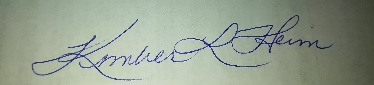 Kimber L Heim